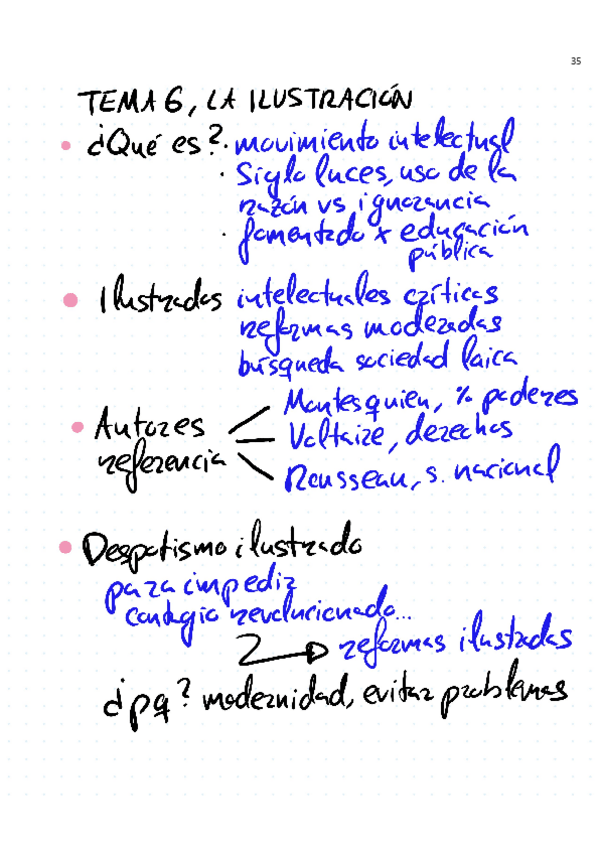 35
TEMA 6, LA ILUSTRACIÓN
• ¿Qué es? · movimiento intelectual
· Siglo luces, uso de la
razón vs ignorancia
· fomentado x educación
pública
• Ilustrados intelectuales críticas
reformas moderadas
búsqueda sociedad laica
• Autores referencia
Montesquieu, % poderes
Voltaire, derechos
Rousseau, s. nacional
• Despotismo ilustrado
para impedir
contagio revolucionado...
→ reformas ilustradas
¿pq? modernidad, evitar problemas